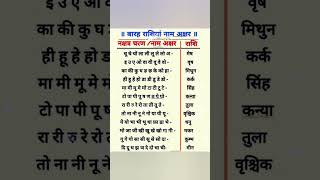 ॥ बारह राशियां नाम अक्षर ॥
नक्षत्र चरण /नाम अक्षर राशि
चू चे चो ला ली लू ले लो अ - मेष
इ उ ए ओ वा वी वू वे वो - वृष
का की कु घ ङ छ के को हा - मिथुन
ही हू हे हो डा डी डू डे डो - कर्क
मा मी मू मे मो टा टी टू टे - सिंह
टो पा पी पू ष ण ठ पे पो - कन्या
रा री रु रे रो ता ती तू ते - तुला
तो ना नी नू ने नो या यी यू - वृश्चिक
ये यो भा भी भू धा फा ढा भे - धनु
भो जा जी खी खू खे खो गा गी - मकर
गू गे गो सा सी सू से सो दा - कुम्भ
दि दू थ झ ञ दे दो चा ची- मीन